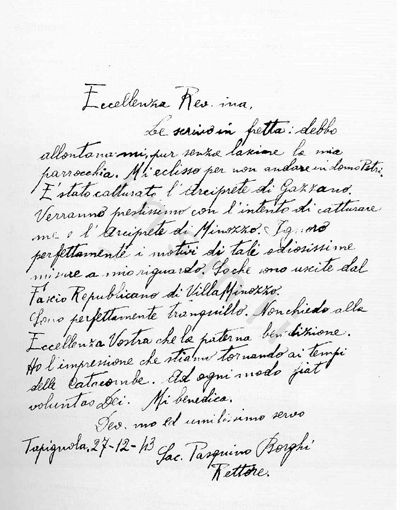 Eccellenza Rev.ina,
Le scrivo in fretta: debbo
allontanarmi, pur senza lasciare la mia
parrocchia. Mi eclisso per non andare in domo Petri.
E' stato catturato l'Arciprete di Gazzano.
Verranno prestissimo con l'intento di catturare
me e l'Arciprete di Minozzo. Ignoro
perfettamente i motivi di tali odiosissime
misure a mio riguardo. So che sono uscite dal
Fascio Repubblicano di Villa Minozzo.
Sono perfettamente tranquillo. Non chiedo alla
Eccellenza Vostra che la paterna benedizione.
Ho l'impressione che stiamo tornando ai tempi
delle Catacombe. Ad ogni modo fiat
voluntas Dei. Mi benedica.
Dev.mo ed umilissimo servo
Tapignola, 27-12-43 Sac. Pasquino Borghi
Rettore.